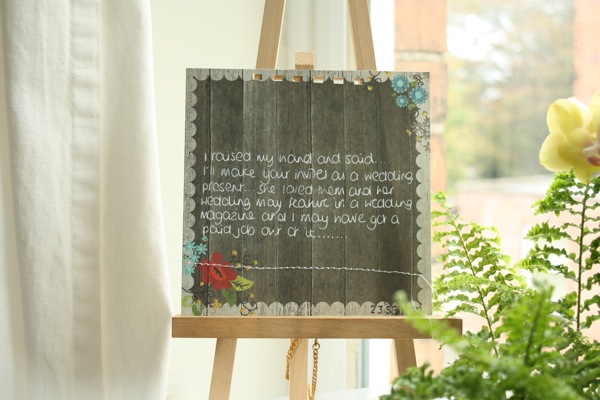 I raised my hand and said...
I'll make your invites as a wedding
present... she loved them and her
wedding may feature in a wedding
magazine and I may have got a
paid job out of it.......
23 SEP